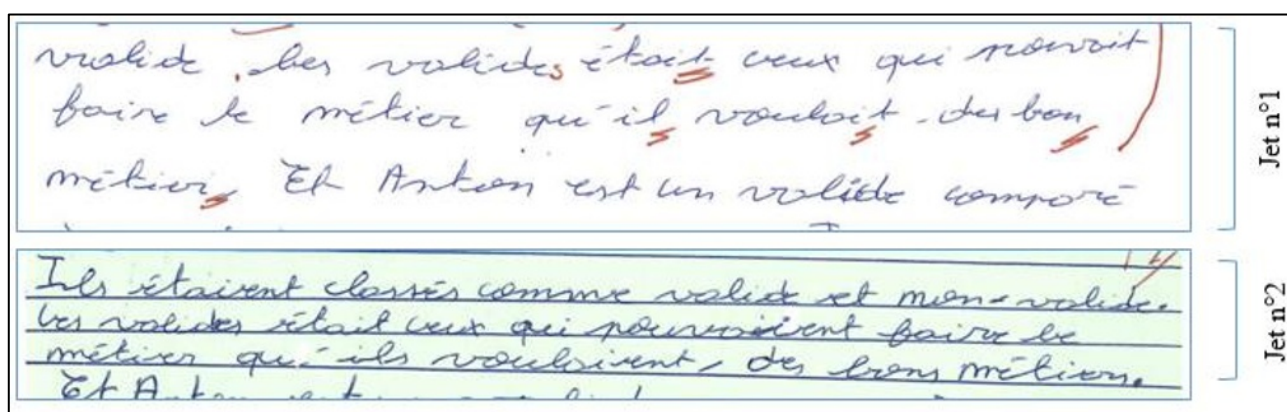 valide. Les valides était ceux qui pouvait
faire le métier qu'il vouloit. des bon
métier, Et Anton est un valide comparé
Jet n°1
Ils étaient classés comme valide et non-valide.
Les valides était ceux qui pouvaient faire le
métier qu'ils voulaient, des bons métiers.
Et Anton est un
Jet n°2